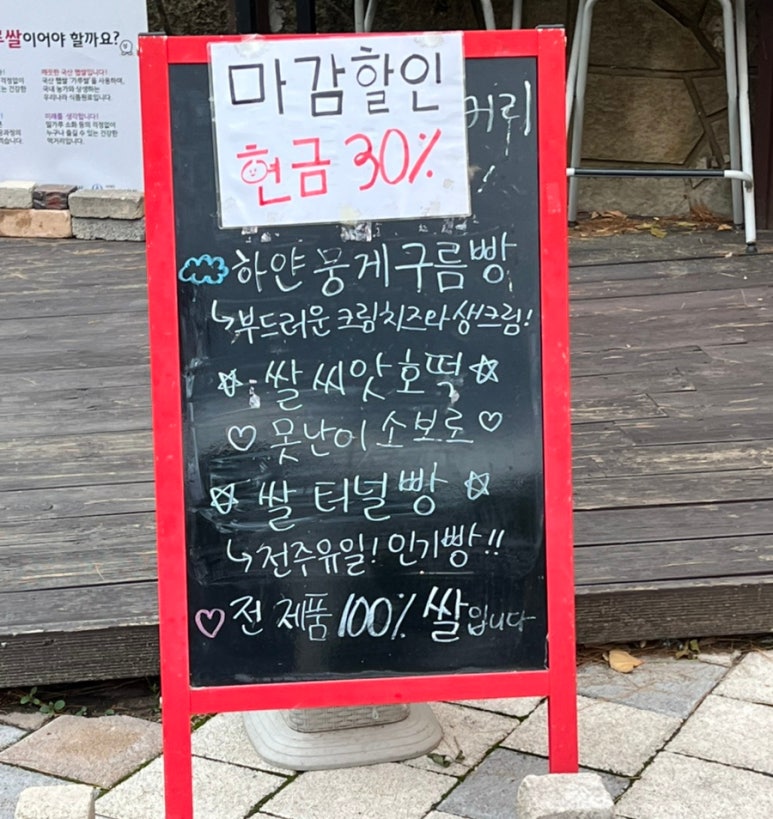 쌀이어야 할까요?
깨끗한 국산 햅쌀입니다!
국산 햅쌀 '가루쌀'을 사용하여,
국내 농가와 상생하는
우리나라 식품원료입니다.
미래를 생각합니다!
밀가루 소화 등의 걱정없이
누구나 즐길 수 있는 건강한
먹거리입니다.
마감할인
현금 30%
커리
!
하얀 뭉게구름빵
↳부드러운 크림치즈와 생크림!
쌀 씨앗호떡
못난이 소보로
쌀 터널빵
↳전주유일! 인기빵!!
전 제품 100% 쌀입니다